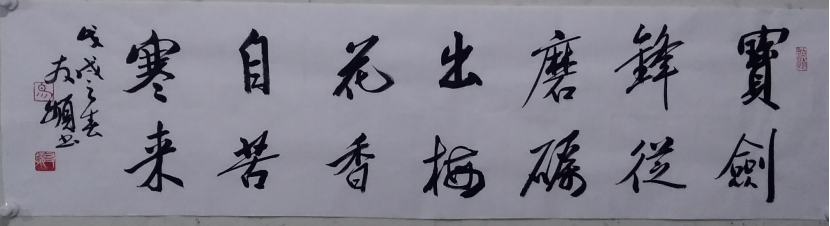 寶劍
鋒從
磨礪
出梅
花香
自苦
寒来
戊戌之春
友順书